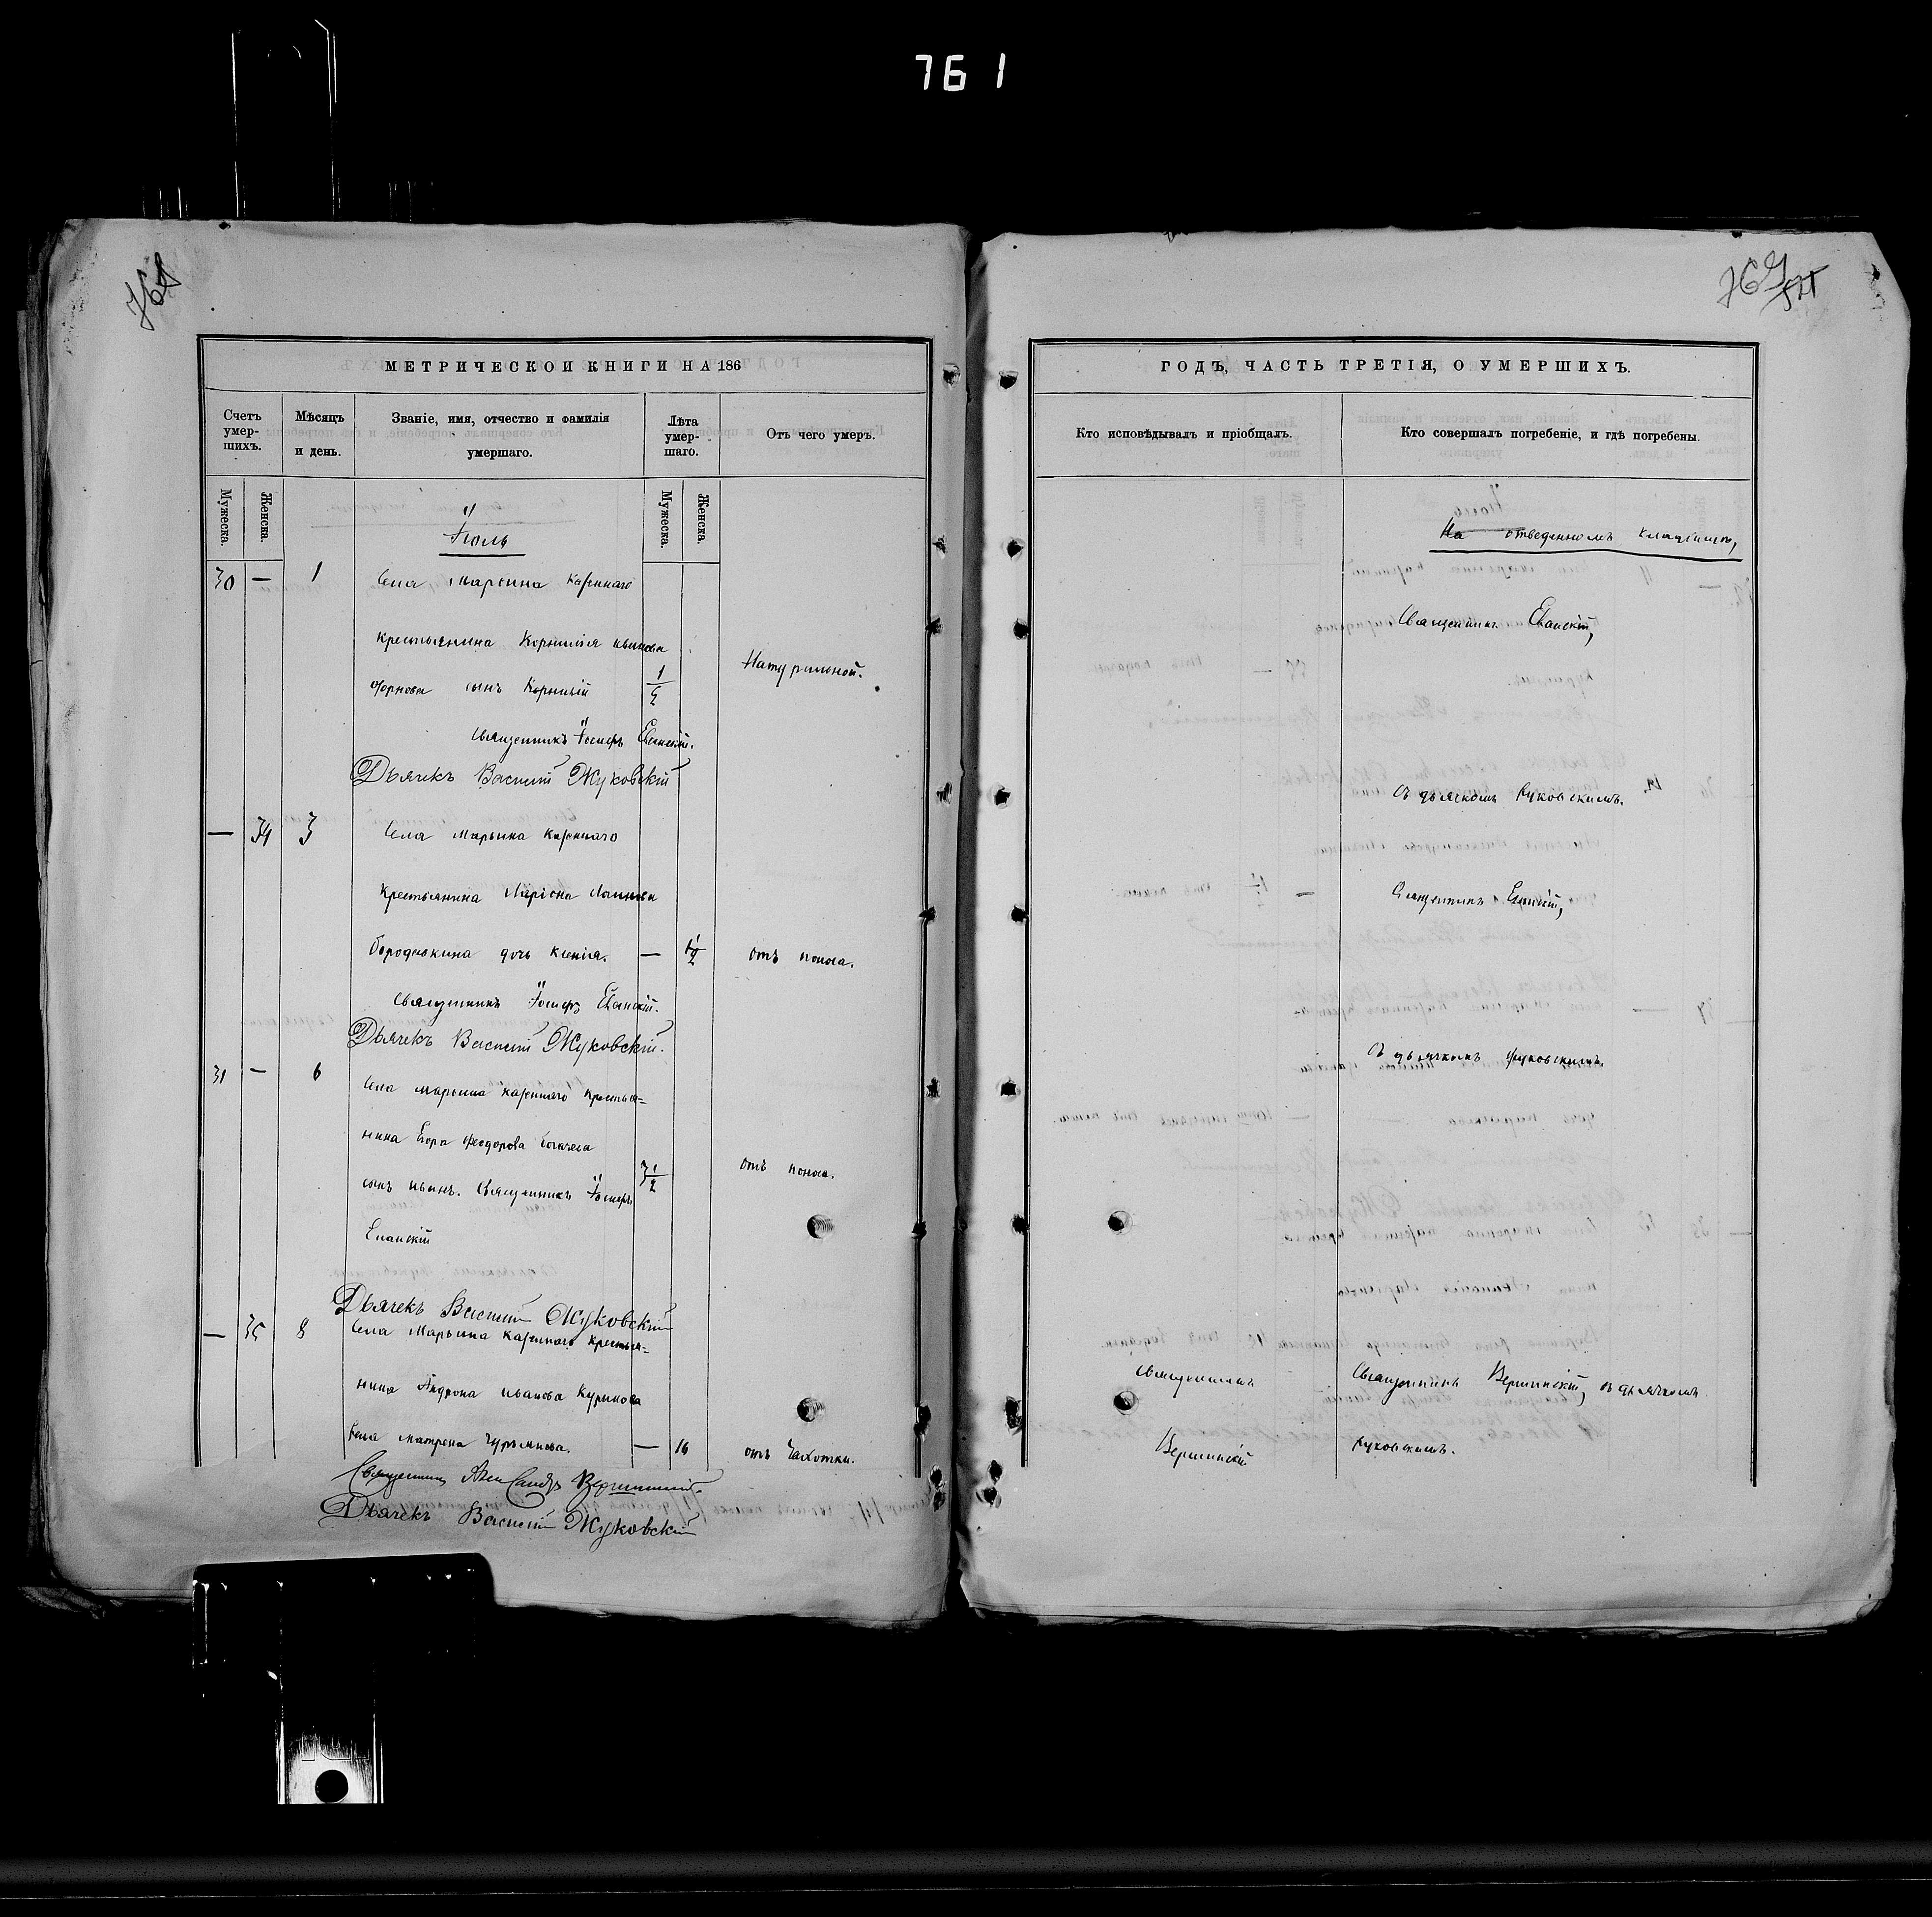 761
768
769
МЕТРИЧЕСКОЙ КНИГИ НА 186
Счетъ умер-шихъ.
Мѣсяцъ и день.
Званіе, имя, отчество и фамилія умершаго.
Лѣта умер-шаго.
Отъ чего умеръ.
Мужеска.
Женска.
Мужеска.
Женска.
Іюль
30 — 1 Села Марьина Казеннаго
крестьянина Корнилія Иванова
сынъ Корнилій 1/2 Натуральной.
Священникъ Іосифъ Еланскій.
Дьячекъ Василій Жуковскій
— 34 3 Села Марьина казеннаго
крестьянина Ларіона
Бородавкина дочь Ксенія. — 1 1/2 отъ поноса.
Священникъ Іосифъ Еланскій.
Дьячекъ Василій Жуковскій.
31 — 6 Села Марьина казеннаго крестья=
нина Егора Феодорова
сынъ Иванъ. Священникъ Іосифъ 3 1/2 отъ поноса.
Еланскій
Дьячекъ Василій Жуковскій
— 35 8 Села Марьина казеннаго крестья=
нина Андрона Иванова
жена Матрона — 16 отъ Чахотки.
Священникъ Александръ Вершинскій.
Дьячекъ Василій Жуковскій
ГОДЪ, ЧАСТЬ ТРЕТІЯ, О УМЕРШИХЪ.
Кто исповѣдывалъ и пріобщалъ.
Кто совершалъ погребеніе, и гдѣ погребены.
На отведенномъ кладбищѣ,
Священникъ Еланскій,
съ дьячкомъ Жуковскимъ.
Священникъ Еланскій,
съ дьячкомъ Жуковскимъ.
Священникъ Священникъ Вершинскій, съ дьячкомъ
Вершинскій Жуковскимъ.